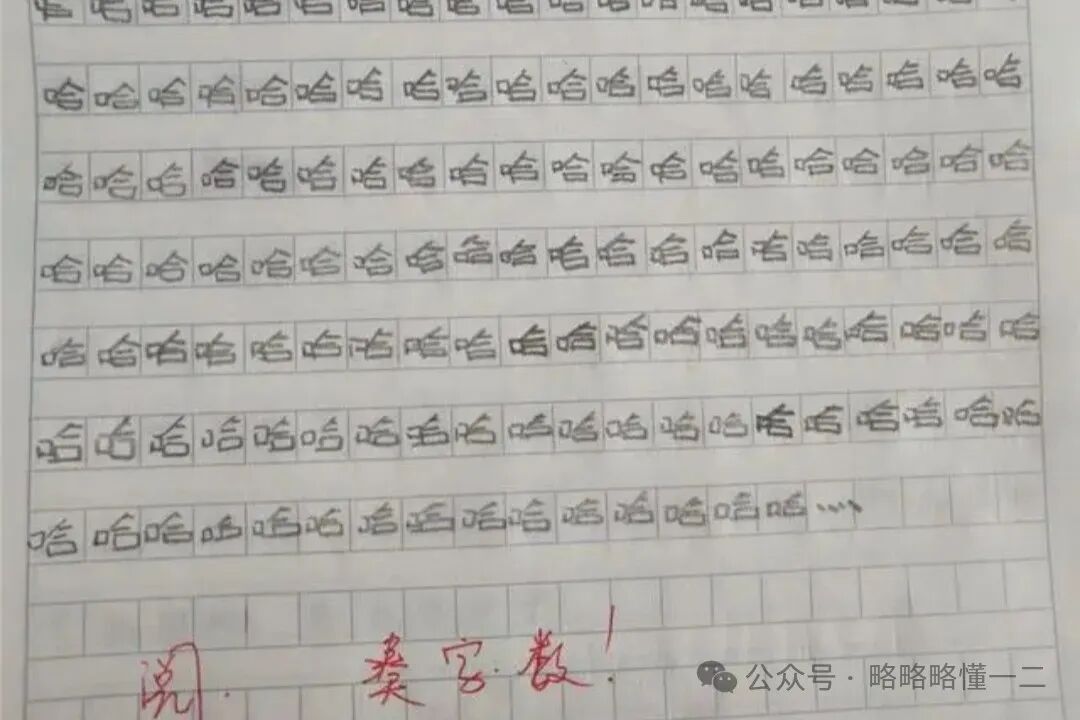 哈哈哈哈哈哈哈哈哈哈哈哈哈哈哈哈哈哈哈哈
哈哈哈哈哈哈哈哈哈哈哈哈哈哈哈哈哈哈哈哈
哈哈哈哈哈哈哈哈哈哈哈哈哈哈哈哈哈哈哈哈
哈哈哈哈哈哈哈哈哈哈哈哈哈哈哈哈哈哈哈哈
哈哈哈哈哈哈哈哈哈哈哈哈哈哈哈哈哈哈哈哈
哈哈哈哈哈哈哈哈哈哈哈哈哈哈哈……
字数!
公众号·略略略懂一二